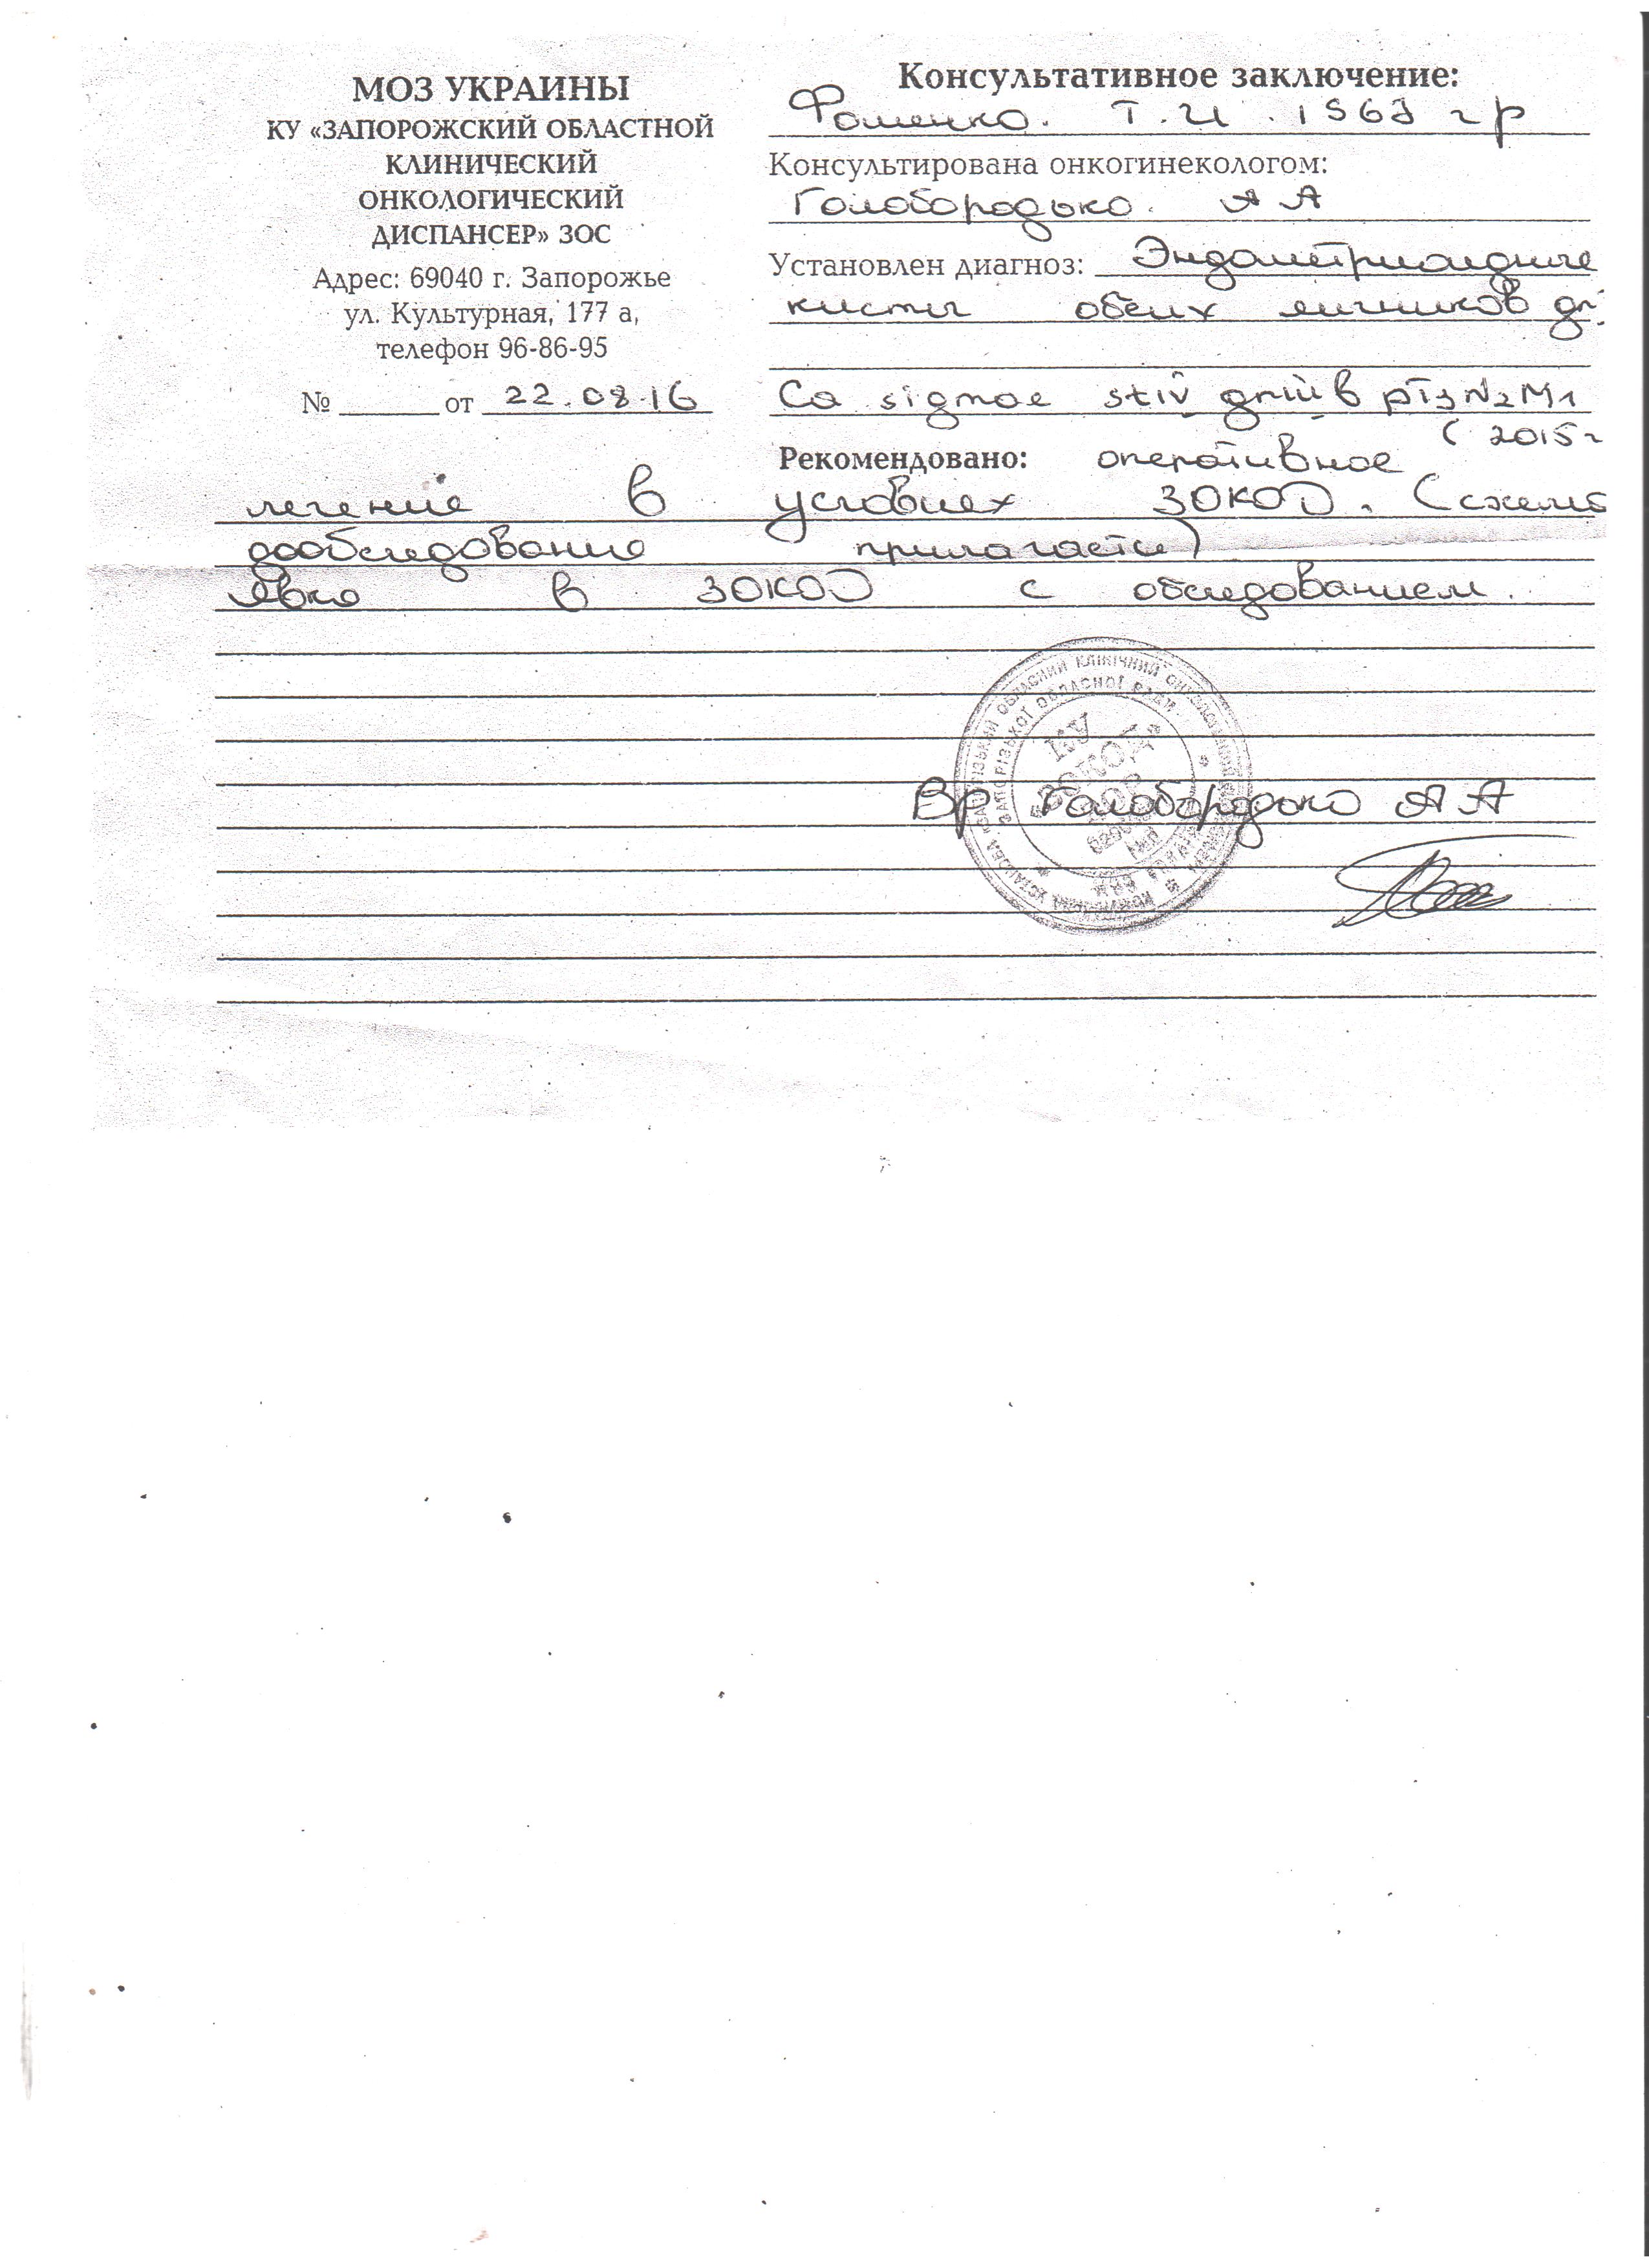 МОЗ УКРАИНЫ
КУ «ЗАПОРОЖСКИЙ ОБЛАСТНОЙ
КЛИНИЧЕСКИЙ
ОНКОЛОГИЧЕСКИЙ
ДИСПАНСЕР» ЗОС
Адрес: 69040 г. Запорожье
ул. Культурная, 177 а,
телефон 96-86-95
№ ______ от 22.08.16
Консультативное заключение:
Фоменко. Т.И. 1963 г р
Консультирована онкогинекологом:
Голобородько. А А
Установлен диагноз: Эндометриоидные
кисты обеих яичников
Ca sigmae st IV gr III б pT3N2M1
( 2015 г
Рекомендовано: оперативное
лечение в условиях ЗОКОД. (схема
дообследования прилагается)
Явка в ЗОКОД с обследованием.
КУ
«ЗОКОД»
ЗОР
Вр Голобородько А А